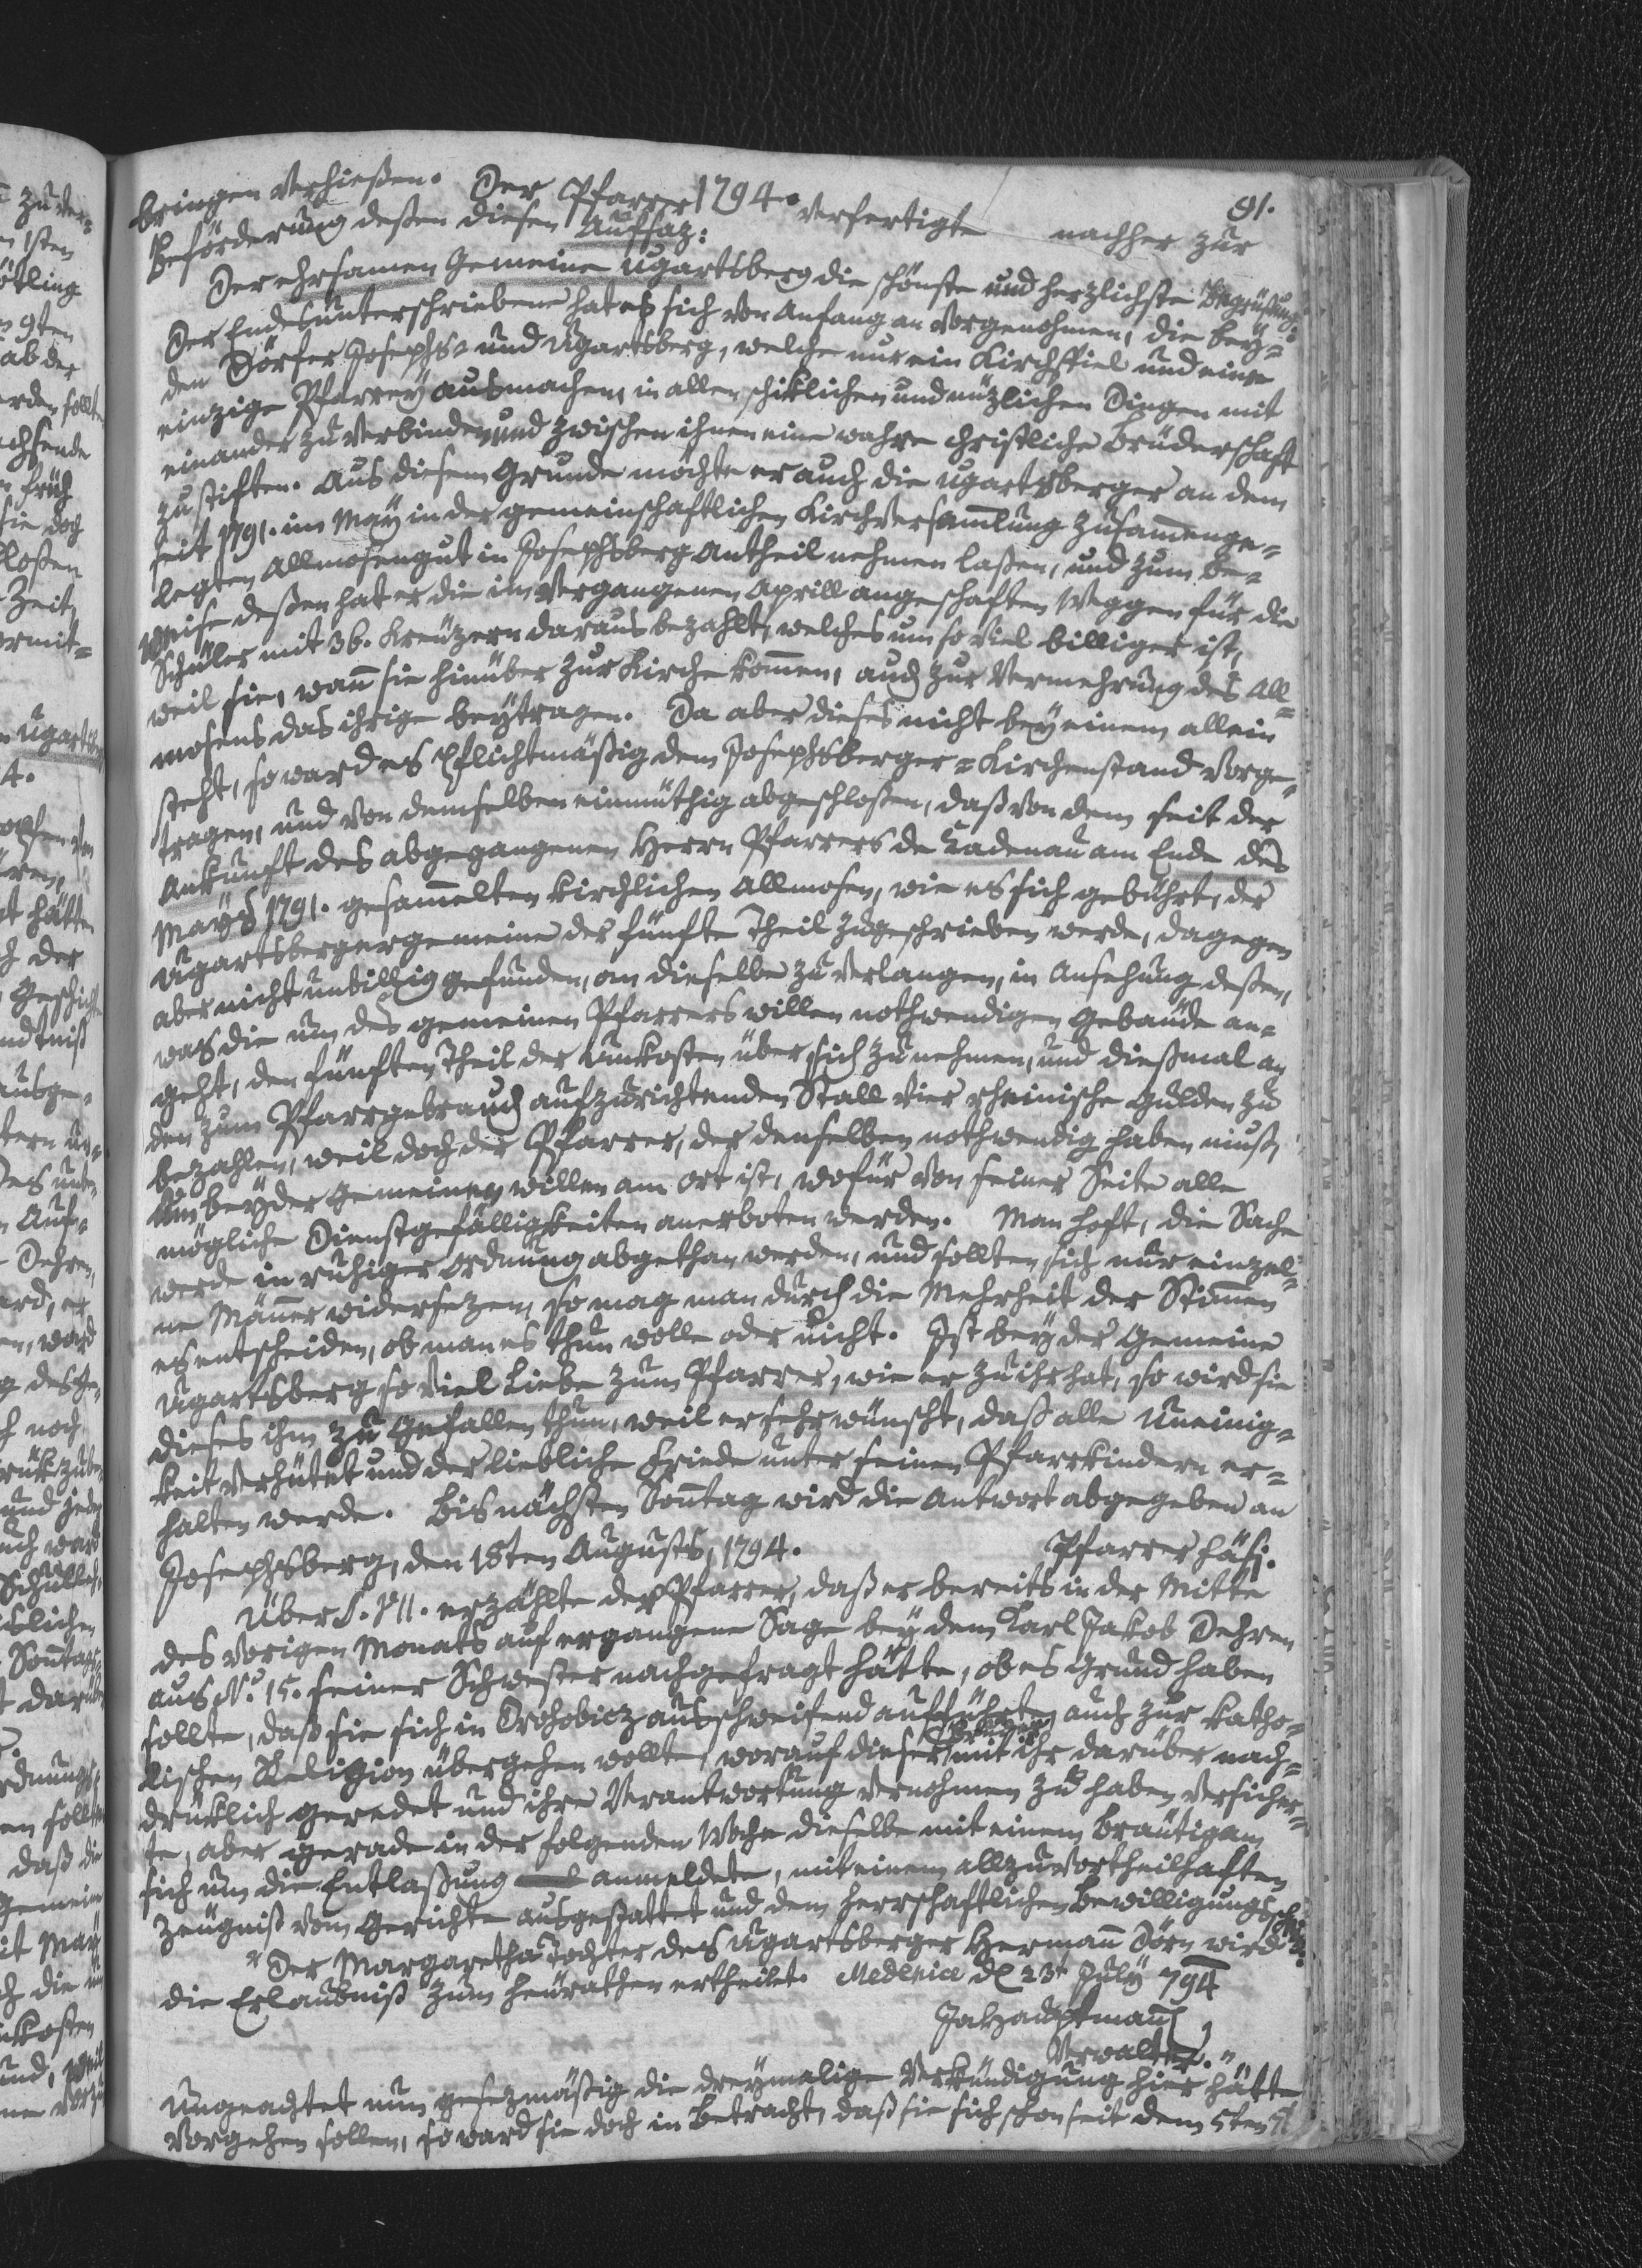 1794. 91.
bringen verhießen. Der Pfarrer verfertigte nachher zur
Beförderung deßen diesen Auffaz:
Der ehrsamen Gemeine Ugartsberg die schönste und herzlichste Begrüßung.
Der Endesunterschriebene hat es sich von Anfang an vorgenohmen, die bey=
den Dörfer Josephs= und Ugartsberg, welche nur ein Kirchspiel und eine
einzige Pfarrey ausmachen, in allen schiklichen und nüzlichen Dingen mit
einander zu verbinden und zwischen ihnen eine wahre christliche Brüderschaft
zu stiften. Aus diesem Grunde möchte er auch die Ugartsberger an dem
seit 1791. im May in der gemeinschaftlichen Kirchversam̄lung zusam̄enge=
legten Allmosengut in Josephsberg Antheil nehmen laßen, und zum Be=
weise deßen hat er die im vergangenen Aprill angeschaften Weggen für die
Schüler mit 36. Kreuzern daraus bezahlt, welches um so viel billiger ist,
weil sie, wan̄ sie hinüber zur Kirche kom̄en, auch zur Vermehrung des All=
mosens das ihrige beytragen. Da aber dieses nicht bey einem allein
steht, so ward es pflichtmäßig dem Josephsberger=Kirchenstand vorge=
tragen, und von demselben einmüthig abgeschloßen, daß von dem seit der
Ankunft des abgegangenen Herrn Pfarrers de Cadenau am Ende des
Mays 1791. gesam̄elten kirchlichen Allmosen, wie es sich gebührt, der
Ugartsbergergemeine der fünfte Theil zugeschrieben werde, dagegen
aber nicht unbillig gefunden, an dieselbe zu verlangen, in Ansehung deßen,
was die um des gemeinen Pfarrers willen nothwendigen Gebäude an=
geht, den fünften Theil der Unkosten über sich zu nehmen, und dießmal an
den zum Pfarrgebrauch aufzurichtenden Stall vier rheinische Gulden zu
bezahlen, weil doch der Pfarrer, der denselben nothwendig haben muß,
um beyder Gemeinen willen am Ort ist, wofür von seiner Seite alle
mögliche Dienstgefälligkeiten anerboten werden. Man hoft, die Sache
werde in ruhiger Ordnung abgethan werden, und sollten sich nur einzel=
ne Män̄er widersezen, so mag man durch die Mehrheit der Stim̄en
es entscheiden, ob man es thun wolle oder nicht. Ist bey der Gemeine
Ugartsberg so viel Liebe zum Pfarrer, wie er zu ihr hat, so wird sie
dieses ihm zu Gefallen thun, weil er sehr wünscht, daß alle Uneinig=
keit verhütet und der liebliche Friede unter seinen Pfarrkindern er=
halten werde. Bis nächsten Son̄tag wird die Antwort abgegeben an
Pfarrer Häfi.
Josephsberg, den 18ten Augusts, 1794.
Über S. 711. erzählte der Pfarrer, daß er bereits in der Mitte
des vorigen Monats auf ergangene Sage bey dem Carl Jakob Dehren
aus No. 15. seiner Schwester nachgefragt hätte, ob es Grund haben
sollte, daß sie sich in Drohobicz ausschweifend aufführte, auch zur katho=
lischen Religion übergehen wollte, worauf dieser mit ihr darüber nach=
drüklich geredet und ihre Verantwortung vernohmen zu haben versicher=
te, aber gerade in der folgenden Woche dieselbe mit einem Bräutigam
sich um die Entlaßung anmeldete, mit einem allzuvortheilhaften
Zeugniß vom Gerichte ausgestattet und dem herrschaftlichen Bewilligungsschein:
"Der Margaretha Tochter des Ugartsberger Herman̄ Dörn wird
die Erlaubniß zum heurathen ertheilet. Medenice d. 23t July 794
Verwalter."
Ungeachtet nun gesezmäßig die dreymalige Verkündigung hier hätte
vorgehen sollen, so ward sie doch in Betracht, daß sie sich schon seit dem 5ten